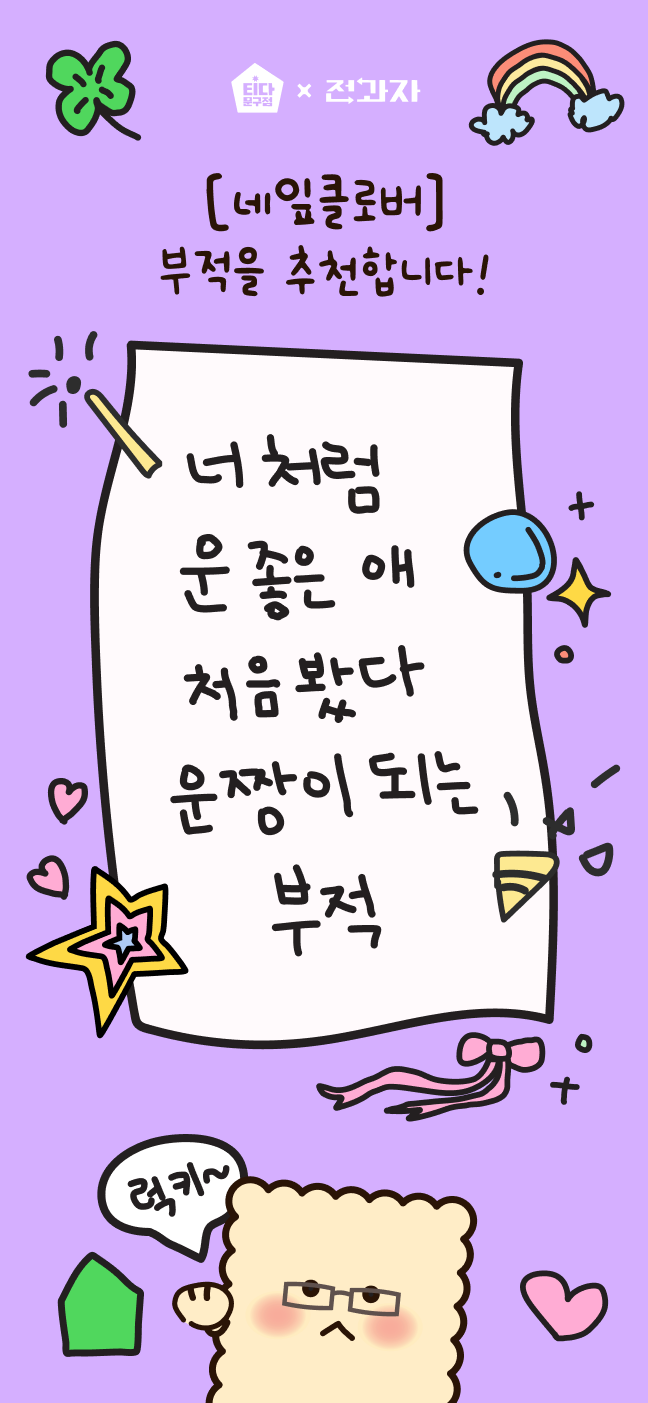 티다
문구점
×
전과자
[네잎클로버]
부적을 추천합니다!
너처럼
운 좋은 애
처음 봤다
운짱이 되는
부적
럭키~